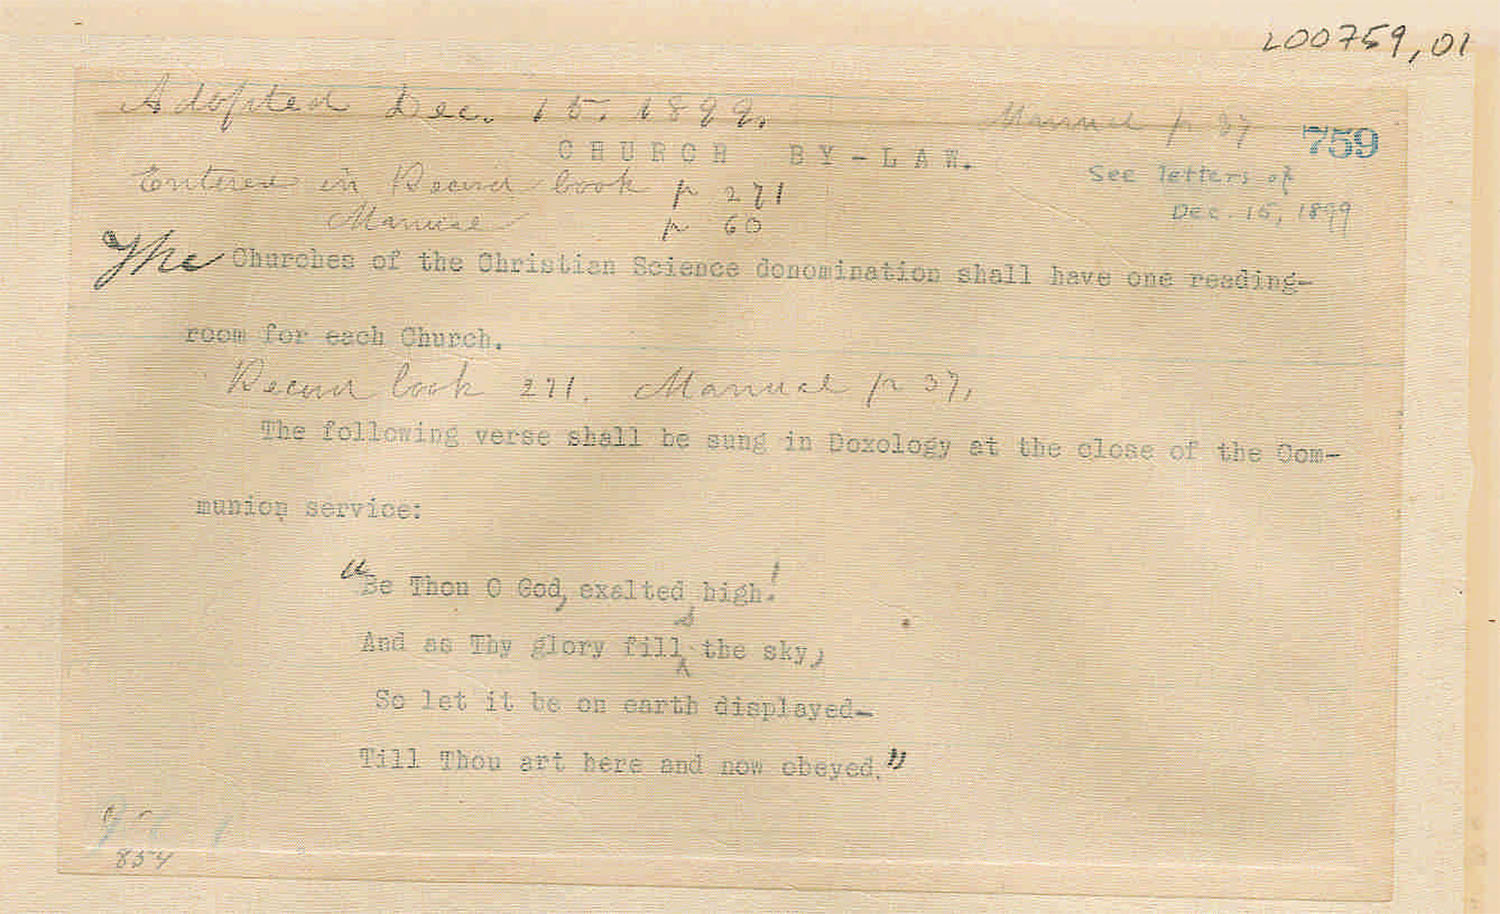 L00759.01
Adopted Dec. 15. 1899.
Manual p 37
759
CHURCH BY-LAW.
See letters of
Dec. 15, 1899
Entered in Record book p 271
Manual p 60
The Churches of the Christian Science donomination shall have one reading-
room for each Church.
Record book 271. Manual p 37,
The following verse shall be sung in Doxology at the close of the Com-
munion service:
"Be Thou O God, exalted high!
And as Thy glory fills the sky,
So let it be on earth displayed-
Till Thou art here and now obeyed."
854